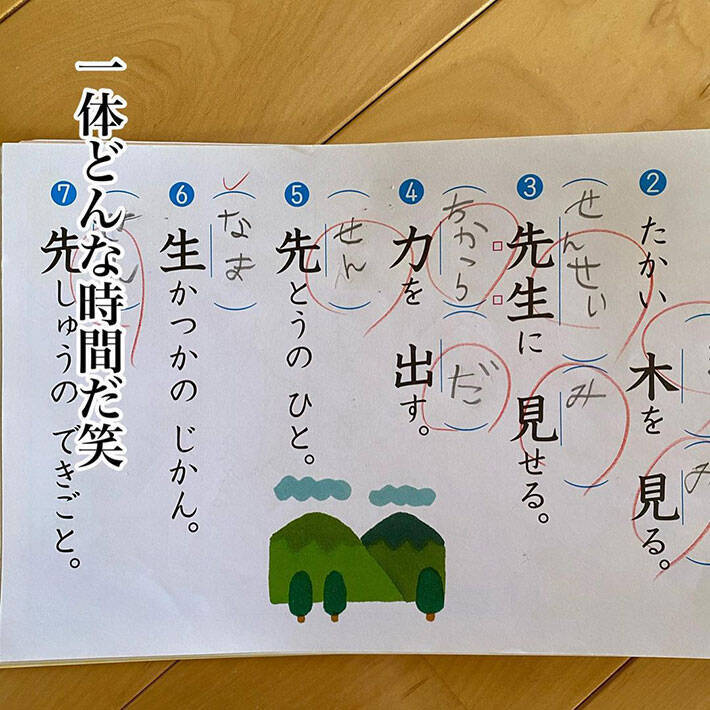 一体どんな時間だ笑
② たかい 木を 見る。
み
③ 先生に 見せる。
せんせい
み
④ 力を 出す。
ちから
だ
⑤ 先とうの ひと。
せん
⑥ 生かつかの じかん。
なま
⑦ 先しゅうの できごと。